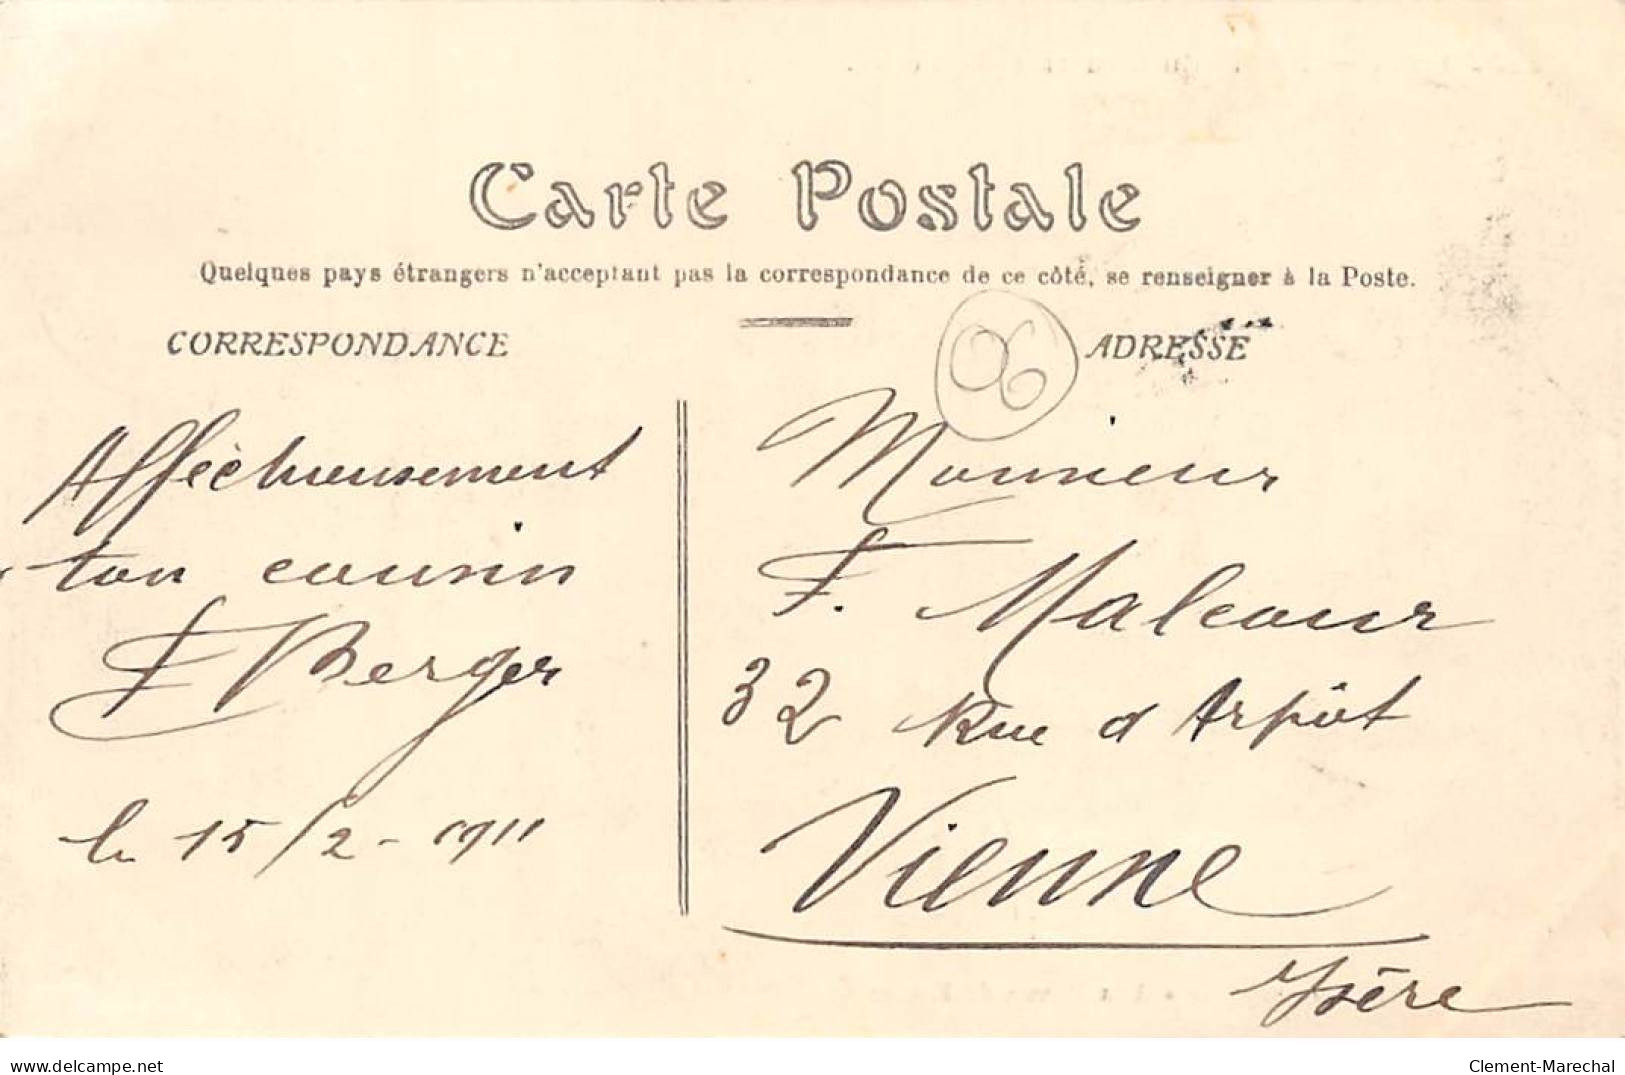 Carte Postale
Quelques pays étrangers n'acceptant pas la correspondance de ce côté, se renseigner à la Poste.
CORRESPONDANCE
Affectueusement
ton cousin
F Berger
le 15/2-1911
06
ADRESSE
Monsieur
F. Malcour
32 Rue d'Arpôt
Vienne
Isère
www.delcampe.net
Clement-Marechal